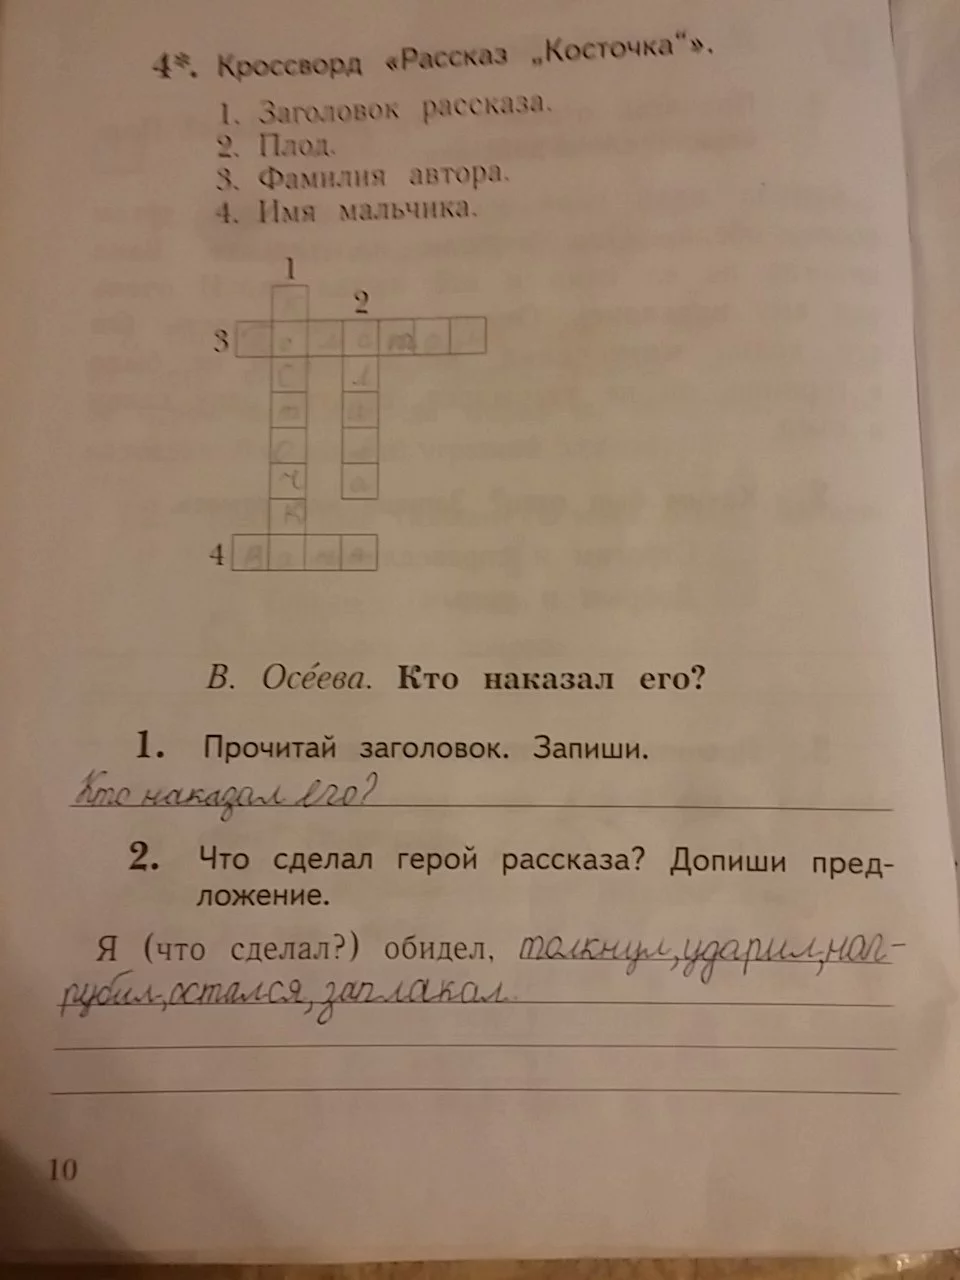 4*. Кроссворд «Рассказ „Косточка“».
1. Заголовок рассказа.
2. Плод.
3. Фамилия автора.
4. Имя мальчика.
1
2
3
4
В. Осе́ева. Кто наказал его?
1. Прочитай заголовок. Запиши.
Кто наказал его?
2. Что сделал герой рассказа? Допиши пред-
ложение.
Я (что сделал?) обидел, толкнул, ударил, наг-
рубил, остался, заплакал.
10